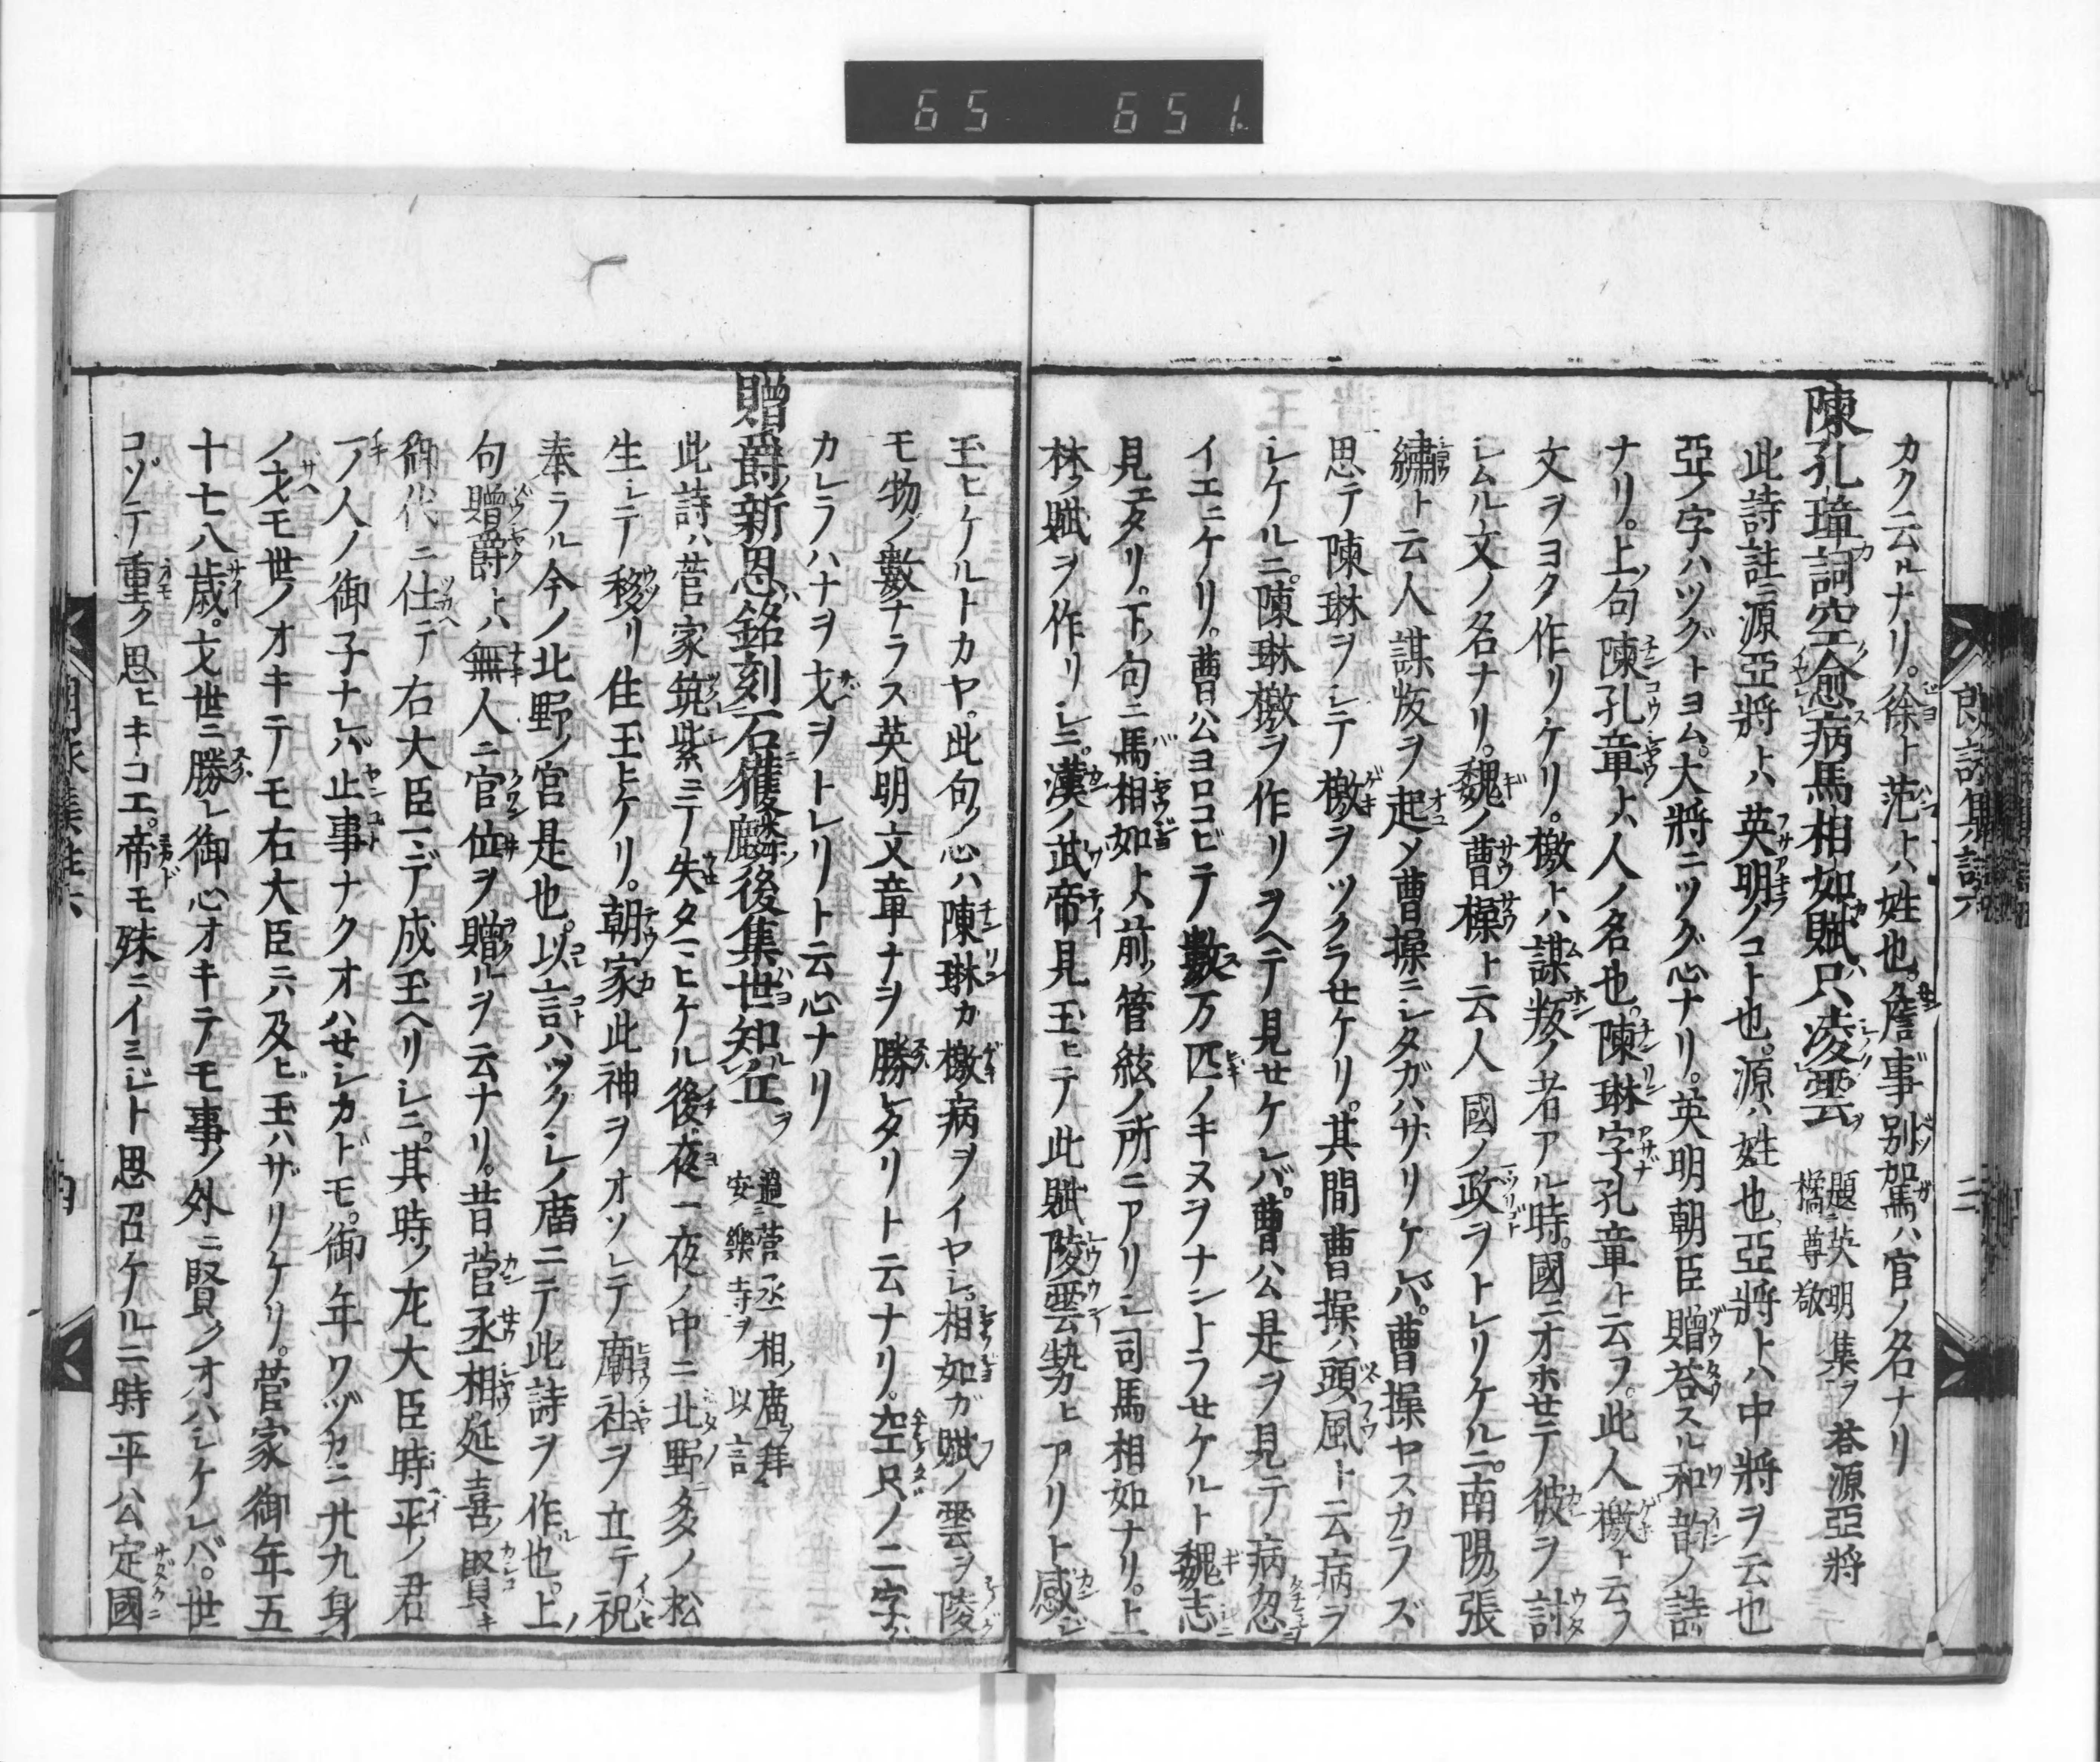 65 651
カク云ルナリ。徐ト范トハ姓也。詹事別駕ハ官ノ名ナリ
陳孔璋詞空愈病馬相如賦只凌雲 題英明集ヲ 荅源亞將 橘尊敬
此詩註ニ源亞將トハ英明ノコト也。源ハ姓也亞將トハ中將ヲ云也
亞ノ字ハツグトヨム。大將ニツグ心ナリ。英明朝臣贈荅スル和韵ノ詩
ナリ。上ノ句陳孔章トハ人ノ名也。陳琳字孔章ト云フ。此人檄ト云フ
文ヲヨク作リケリ。檄トハ謀叛ノ者アル時。國ニオホせテ彼ヲ討
シムル文ノ名ナリ。魏ノ曹操ト云人國ノ政ヲトレリケルニ。南陽ノ張
繡ト云人謀叛ヲ起ソ曹操ニシタガハサリケバ。曹操ヤスカラズ
思テ陳琳ヲシテ檄ヲツクラせケリ。其間曹操ハ頭風ト云病ヲ
シケルニ。陳琳檄ヲ作リヲヘテ見せケレバ。曹公是ヲ見テ病忽
イエニケリ。曹公ヨロコビテ數万匹ノキヌヲナントラせケルト魏志ニ
見エタリ。下ノ句ニ馬相如トハ前ノ管絃ノ所ニアリシ司馬相如ナリ。上
林ノ賦ヲ作リシニ。漢ノ武帝見玉ヒテ此賦陵雲勢ヒアリト感シ
玉ヒケルトカヤ。此句ノ心ハ陳琳カ檄病ヲイヤシ。相如ガ賦ノ雲ヲ陵
モ物ノ數ナラス英明文章ナヲ勝レタリト云ナリ。空只ノ二字ハ
カレラハナヲ戈ヲトレリト云心ナリ
贈爵新恩銘刻石獲麟後集世知丘 過菅丞相ノ廣拜 安樂寺ヲ 以言
此詩ハ菅家筑紫ニテ失タマヒケル後夜一夜ノ中ニ北野ニ多ノ松
生シテ移リ住玉ヒケリ。朝家此神ヲオソレテ廟社ヲ立テ祝ヒ
奉ラル今ノ北野ノ宮是也。以言ハツクシノ廣ニテ此詩ヲ作ル也。上ノ
句贈爵トハ無人ニ官位ヲ贈ルヲ云ナリ。昔菅丞相延喜ノ賢キ
御代ニ仕テ右大臣マデ成玉ヘリシニ。其時ノ左大臣時平ノ君
一ノ人ノ御子ナレバ止事ナクオハせシカドモ。御年ワヅカニ廿九身
ノ戈モ世ノオキテモ右大臣ニハ及ビ玉ハザリケリ。菅家御年五
十七八歳。文世ニ勝レ御心オキテモ事ノ外ニ賢クオハシケレバ。世
コゾテ重ク思ヒキコエ。帝モ殊ニイミジト思召ケルニ時平公定國